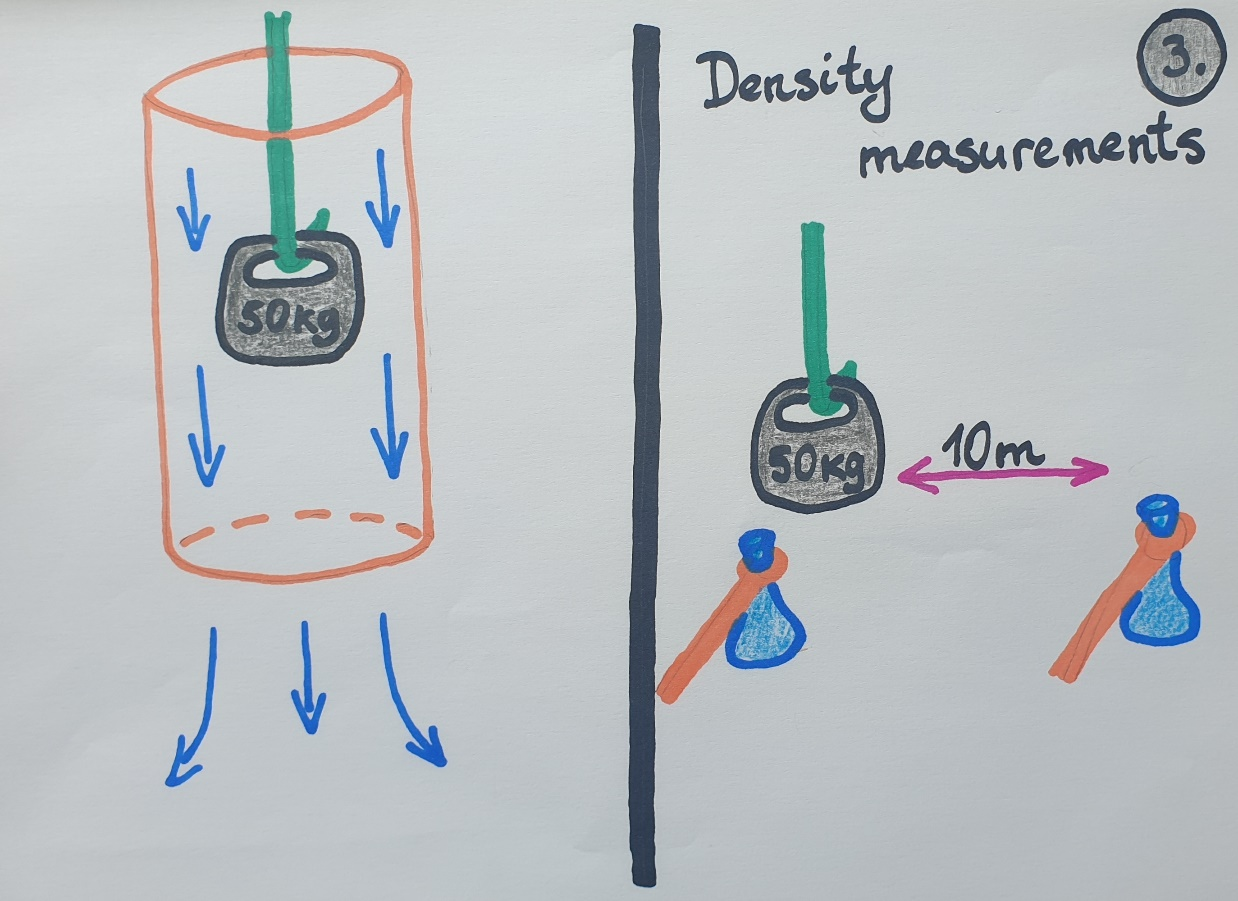 50kg
3.
Density
measurements
50kg
10m